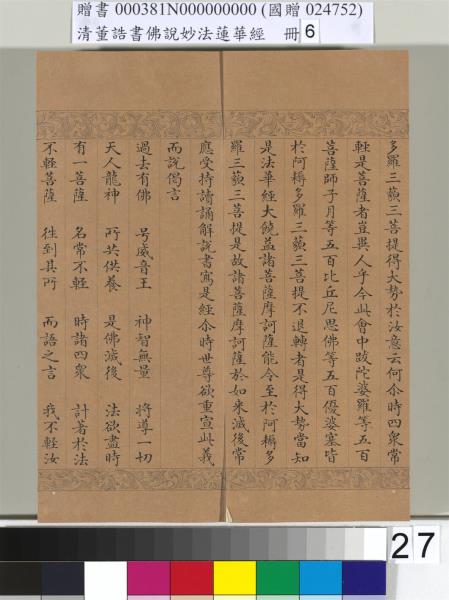 贈書 000381N000000000 (國贈 024752)
清董誥書佛說妙法蓮華經 冊 6
多羅三藐三菩提得大勢於汝意云何尒時四衆常
輕是菩薩者豈異人乎今此會中跋陀婆羅等五百
菩薩師子月等五百比丘尼思佛等五百優婆塞皆
於阿耨多羅三藐三菩提不退轉者是得大勢當知
是法華經大饒益諸菩薩摩訶薩能令至於阿耨多
羅三藐三菩提是故諸菩薩摩訶薩於如来滅後常
應受持讀誦解說書寫是經尒時世尊欲重宣此義
而說偈言
過去有佛 号威音王 神智無量 將導一切
天人龍神 所共供養 是佛滅後 法欲盡時
有一菩薩 名常不輕 時諸四衆 計著於法
不輕菩薩 往到其所 而語之言 我不輕汝
27